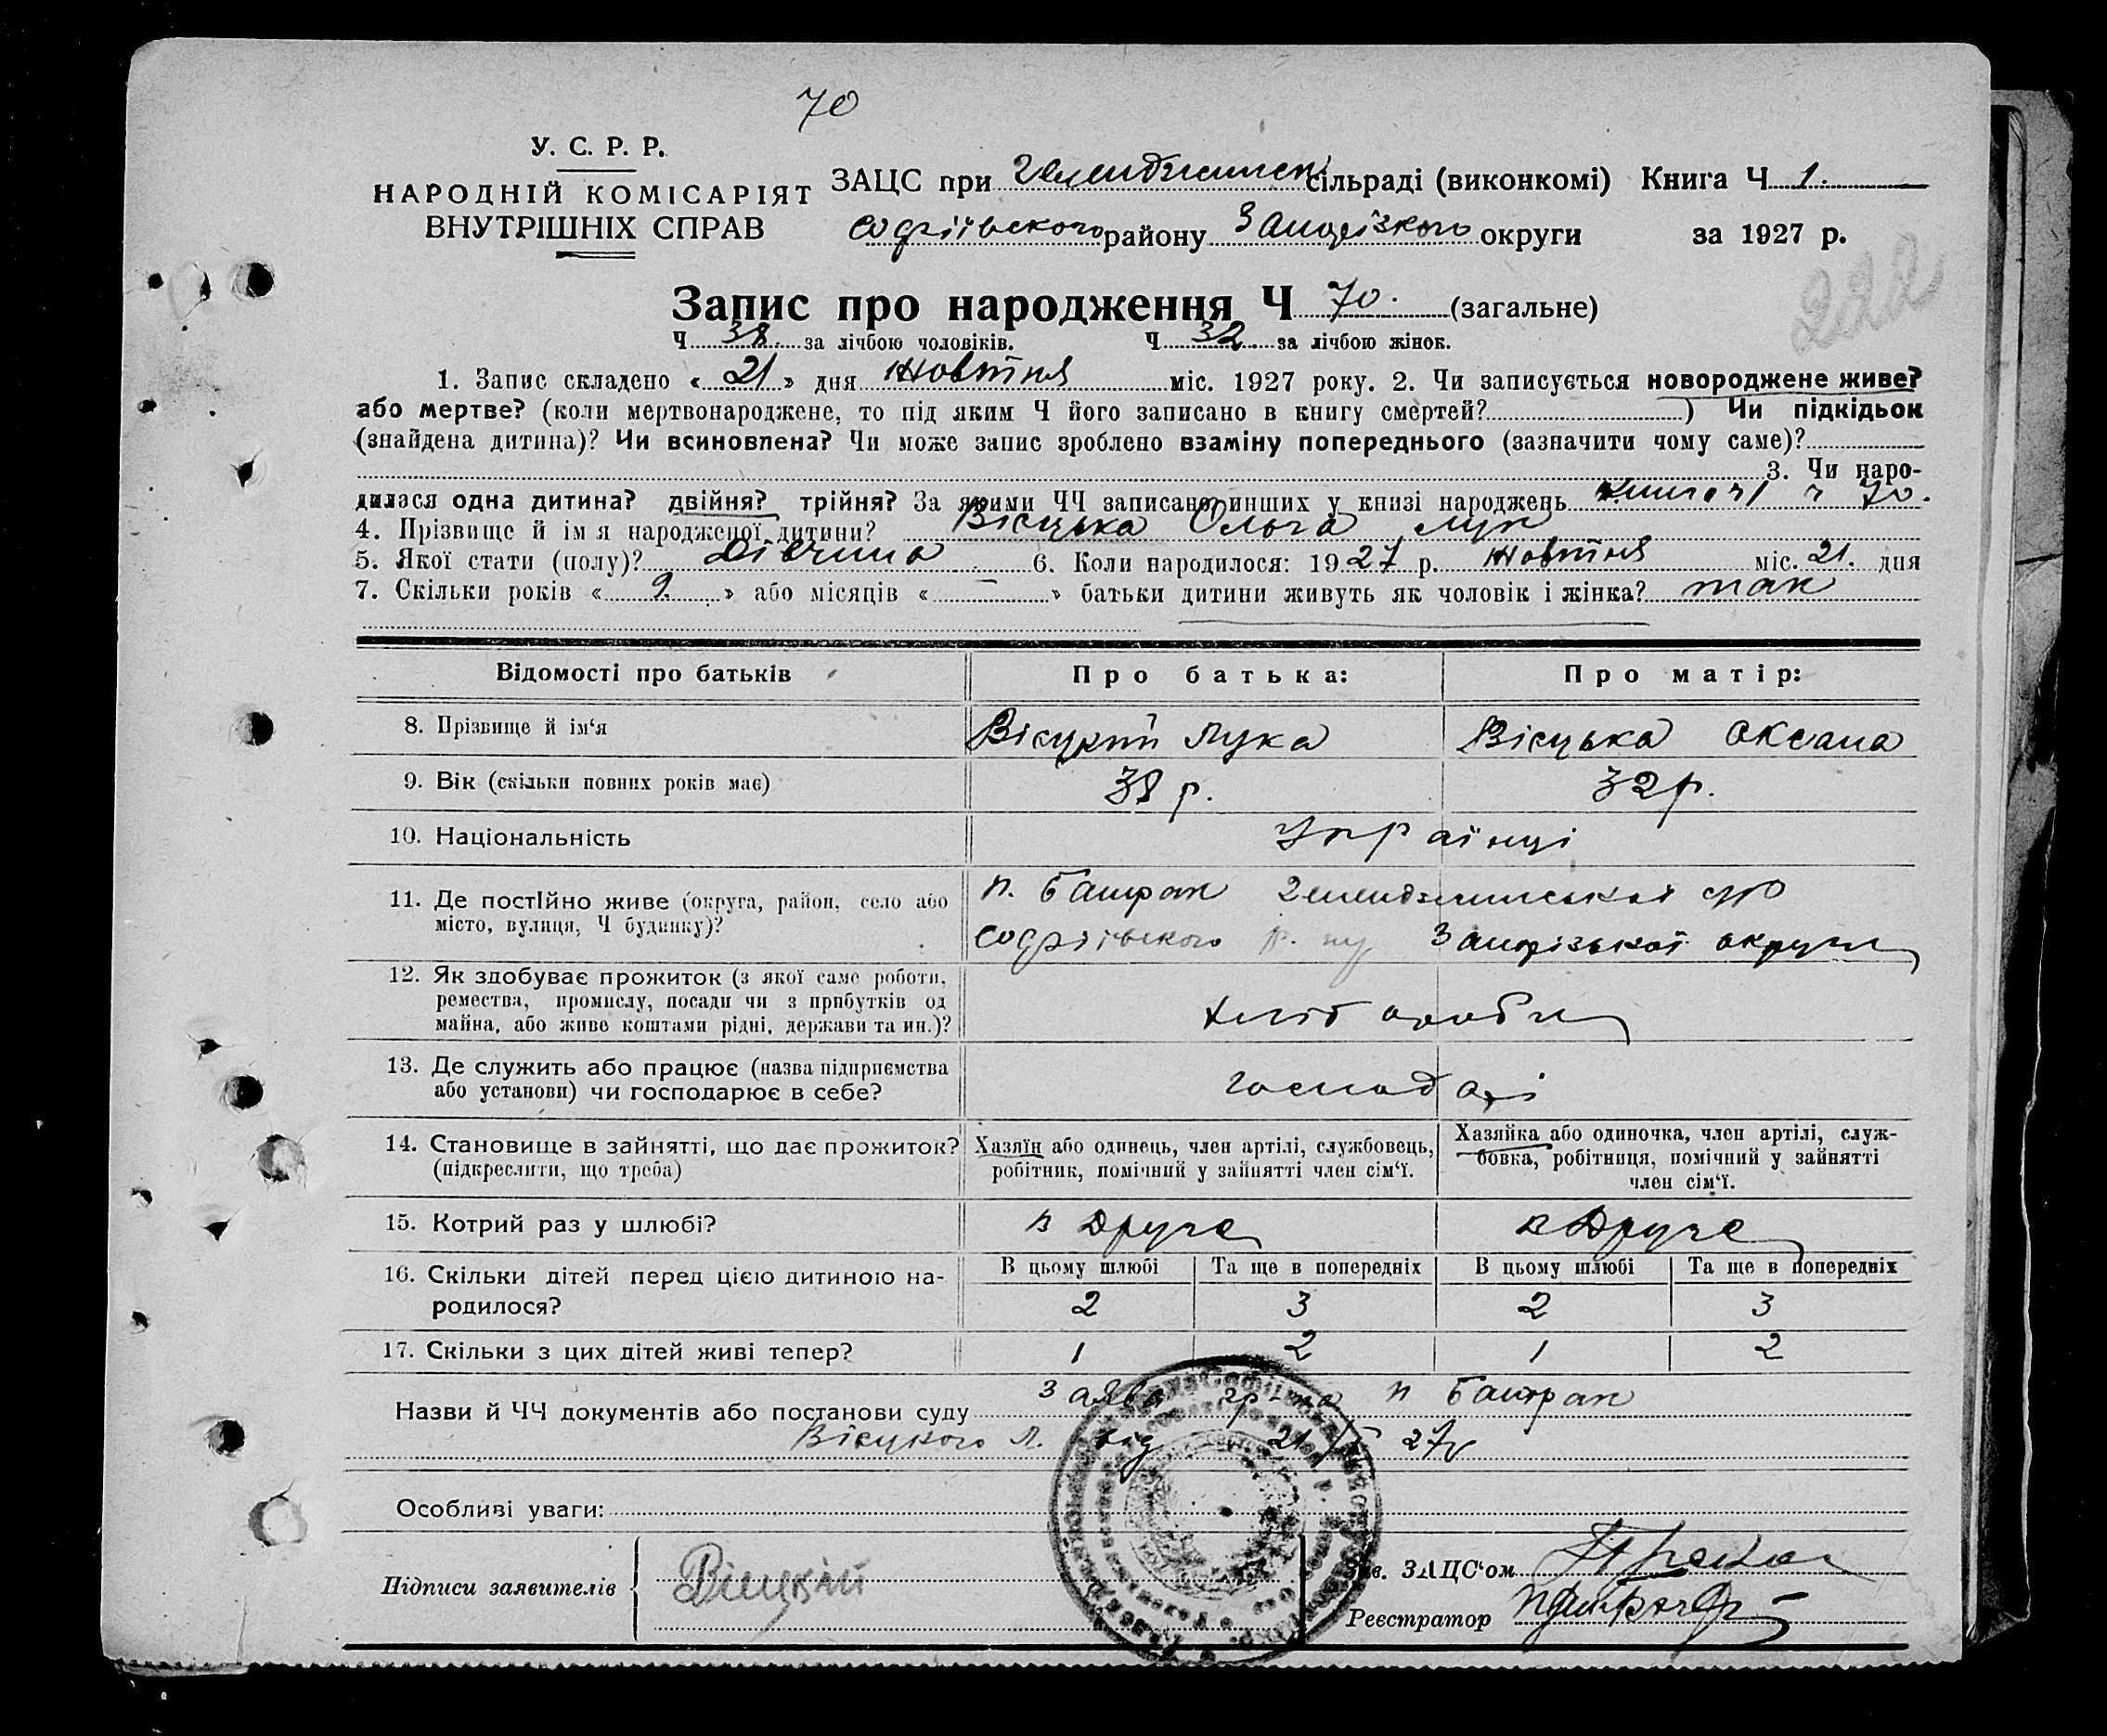 70
У. С. Р. Р.
НАРОДНІЙ КОМІСАРІЯТ
ВНУТРІШНІХ СПРАВ
ЗАЦС при сільраді (виконкомі) Книга Ч 1.
Софіївського району Запорізького округи за 1927 р.
222
Запис про народження Ч 70. (загальне)
Ч 38. за лічбою чоловіків. Ч 32. за лічбою жінок.
1. Запис складено « 21 » дня Жовтня міс. 1927 року. 2. Чи записується новороджене живе?
або мертве? (коли мертвонароджене, то під яким Ч його записано в книгу смертей? ) Чи підкідьок
(знайдена дитина)? Чи всиновлена? Чи може запис зроблено взаміну попереднього (зазначити чому саме)?
3. Чи наро-
дилася одна дитина? двійня? трійня? За якими ЧЧ записано инших у книзі народжень 70.
4. Прізвище й ім я народженої дитини? Вісцька Ольга Лук
5. Якої стати (полу)? Дівчина 6. Коли народилося: 1927 р. Жовтня міс. 21. дня
7. Скільки років « 9. » або місяців « – » батьки дитини живуть як чоловік і жінка? так
Відомості про батьків Про батька: Про матір:
8. Прізвище й ім‘я Вісцкий Лука Вісцька Оксана
9. Вік (скільки повних років має) 38 р. 32 р.
10. Національність Українці
11. Де постійно живе (округа, район, село або п. Башрак
місто, вулиця, Ч будинку)? Софіївського р. Запорізької округи
12. Як здобуває прожиток (з якої саме роботи,
ремества, промислу, посади чи з прибутків од
майна, або живе коштами рідні, держави та ин.)? хлібороби
13. Де служить або працює (назва підприємства
або установи) чи господарює в себе? господарі
14. Становище в зайнятті, що дає прожиток?
(підкреслити, що треба)
Хазяїн або одинець, член артілі, службовець,
робітник, помічний у зайнятті член сім‘ї.
Хазяйка або одиночка, член артілі, служ-
бовка, робітниця, помічний у зайнятті
член сім‘ї.
15. Котрий раз у шлюбі? в Друге в Друге
16. Скільки дітей перед цією дитиною на-
родилося?
В цьому шлюбі Та ще в попередніх В цьому шлюбі Та ще в попередніх
2 3 2 3
17. Скільки з цих дітей живі тепер? 1 2 1 2
Назви й ЧЧ документів або постанови суду заява гр-на п Башрак
Вісцкого Л. від 21/X 27р
Особливі уваги:
Підписи заявителів Вісцкий
Зав. ЗАЦС‘ом
Реєстратор